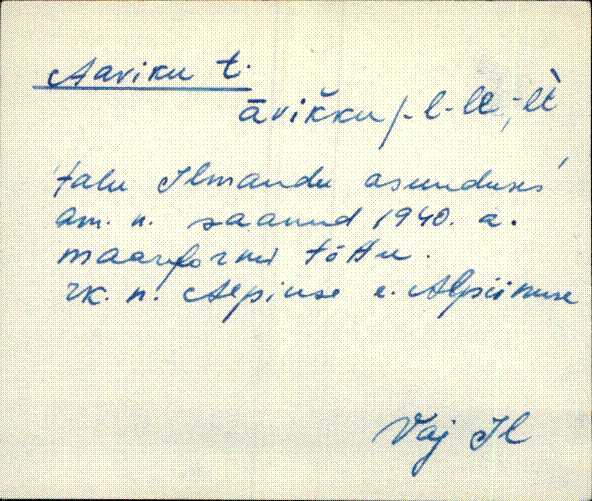 Aaviku t.
āvikku /-l-le, -lt̀
talu Ilmandu asunduses
am. n. saanud 1940. a.
maareformi tõttu.
rk. n. Alpiuse e. Alpiinuse
Vaj Il